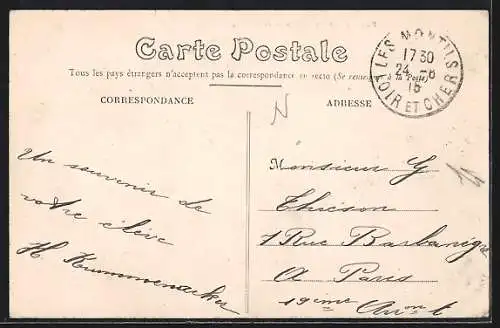 Carte Postale
Tous les pays étrangers n'acceptent pas la correspondance au recto (Se renseigner à la Poste)
CORRESPONDANCE
ADRESSE
LES MONTILS
17 30
24 - 8
15
LOIR ET CHER
N
Un souvenir de
votre élève
H. Krummenacker
Monsieur G
1 Rue Barbanègre
A Paris
19ème